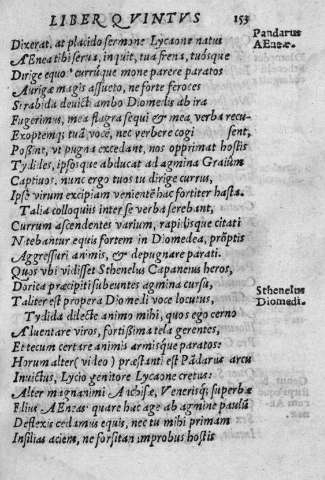 LIBER QVINTVS 153
Dixerat, at placido sermone Lycaone natus
Pandarus
AEneæ.
AEnea tibi serua, inquit, tua frena, tuosque
Dirige equo: currúque mone parere paratos
Aurigæ magis assueto, ne forte feroces
Si rabida deuicti ambo Diomedis ab ira
Fugerimus, mea flagra sequi & mea verba recu-
Exoptemq; tuâ vocē, nec verbere cogi sent,
Possint, vt pugna excedant, nos opprimat hostis
Tydides, ipsosque abducat ad agmina Graiûm
Captiuos, nunc ergo tuos tu dirige currus,
Ipse virum excipiam venientē hac fortiter hasta.
Talia colloquiis inter se verba serebant,
Currum ascendentes varium, rapidisque citati
Nitebantur equis fortem in Diomedea, prōptis
Aggressuri animis, & depugnare parati.
Quos vbi vidisset Sthenelus Capaneius heros,
Dorica præcipiti subeuntes agmina cursu,
Sthenelus
Diomedi.
Taliter est propera Diomedi voce locutus,
Tydida dilecte animo mihi, quos ego cerno
Aduentare viros, fortissima tela gerentes,
Et tecum certare animis armisque paratos:
Horum alter (video) præstanti est Pādarus arcu
Inuictus, Lycio genitore Lycaone cretus:
Alter magnanimi Anchisæ, Venerisq; superbæ
Filius AEneas: quare huc age ab agmine paulū
Deflexis cedamus equis, nec tu mihi primam
Insilias aciem, ne forsitan improbus hostis